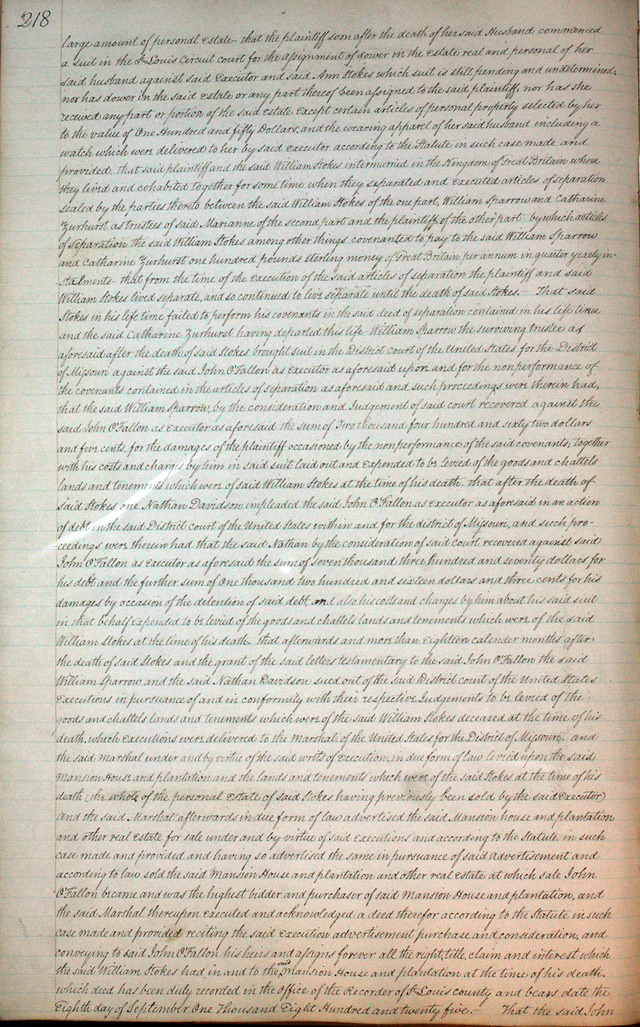 218
large amount of personal Estate – that the plaintiff soon after the death of her said Husband commenced
a suit in the St Louis Circuit court for the assignment of dower in the Estate real and personal of her
said husband against said Executor and said Ann Stokes which suit is still pending and undetermined;
nor has dower in the said Estate or any part thereof been assigned to the said plaintiff, nor has she
received any part or portion of the said Estate Except certain articles of personal property selected by her
to the value of One Hundred and fifty Dollars, and the wearing apparel of her said husband including a
watch which were delivered to her by said executor according to the Statute in such case made and
provided, that said plaintiff and the said William Stokes intermarried in the Kingdom of Great Britain where
they lived and cohabited together for some time when they separated and executed articles of separation
sealed by the parties thereto between the said William Stokes of the one part, William Sparrow and Catharine
Zurhurst as trustees of said Marianne of the second part and the plaintiff of the other part – by which articles
of separation the said William Stokes among other things covenanted to pay to the said William Sparrow
and Catharine Zurhurst one hundred pounds sterling money of Great Britain per annum in quarter yearly in-
stalments – that from the time of the execution of the said articles of separation the plaintiff and said
William Stokes lived separate, and so continued to live separate until the death of said Stokes. – That said
Stokes in his life time failed to perform his covenants in the said deed of separation contained in his life time
and the said Catharine Zurhurst having departed this life William Sparrow the surviving trustee as
aforesaid after the death of said Stokes brought suit in the District court of the United States for the District
of Missouri against the said John O'Fallon as Executor as aforesaid upon and for the nonperformance of
the covenants contained in the articles of separation as aforesaid and such proceedings were therein had,
that the said William Sparrow, by the consideration and Judgement of said court recovered against the
said John O'Fallon as Executor as aforesaid the sum of Two thousand four hundred and sixty two dollars
and five cents, for the damages of the plaintiff occasioned by the nonperformance of the said covenants, together
with his costs and charges by him in said suit laid out and expended to be levied of the goods and chattels
lands and tenements which were of said William Stokes at the time of his death. that after the death of
said Stokes one Nathan Davidson impleaded the said John O'Fallon as Executor as aforesaid in an action
of debt in the said District court of the United States within and for the district of Missouri, and such pro-
ceedings were therein had that the said Nathan by the consideration of said court recovered against said
John O'Fallon as Executor as aforesaid the sum of Seven thousand three hundred and seventy dollars for
his debt and the further sum of One thousand two hundred and sixteen dollars and three cents for his
damages by occasion of the detention of said debt, and also his costs and charges by him about his said suit
in that behalf expended to be levied of the goods and chattels lands and tenements which were of the said
William Stokes at the time of his death. that afterwards and more than Eighteen calender months after
the death of said Stokes and the grant of the said letters testamentary to the said John O'Fallon the said
William Sparrow and the said Nathan Davidson sued out of the Said District court of the United States
Executions in pursuance of and in conformity with their respective Judgements to be levied of the
goods and chattels lands and tenements which were of the said William Stokes deceased at the time of his
death, which executions were delivered to the Marshal of the United States for the District of Missouri. and
the said Marshal under and by virtue of the said writs of Execution, in due form of law levied upon the said
Mansion House and plantation and the lands and tenements which were of the said Stokes at the time of his
death (the whole of the personal Estate of said Stokes having previously been sold by the said Executor)
and the said Marshal afterwards in due form of law advertised the said Mansion house and plantation
and other real Estate for sale under and by virtue of said Executions and according to the Statute in such
case made and provided and having so advertised the same in pursuance of said advertisement and
according to law sold the said Mansion House and plantation and other real Estate at which sale John
O'Fallon became and was the highest bidder and purchaser of said Mansion House and plantation, and
the said Marshal thereupon executed and acknowledged a deed therefor according to the Statute in such
case made and provided reciting the said execution advertisement purchase and consideration, and
conveying to said John O'Fallon his heirs and assigns forever all the right, title, claim and interest which
the said William Stokes had in and to the said Mansion House and plantation at the time of his death.
which deed has been duly recorded in the office of the Recorder of St Louis county and bears date the
Eighth day of September One Thousand Eight Hundred and twenty five. – That the said John